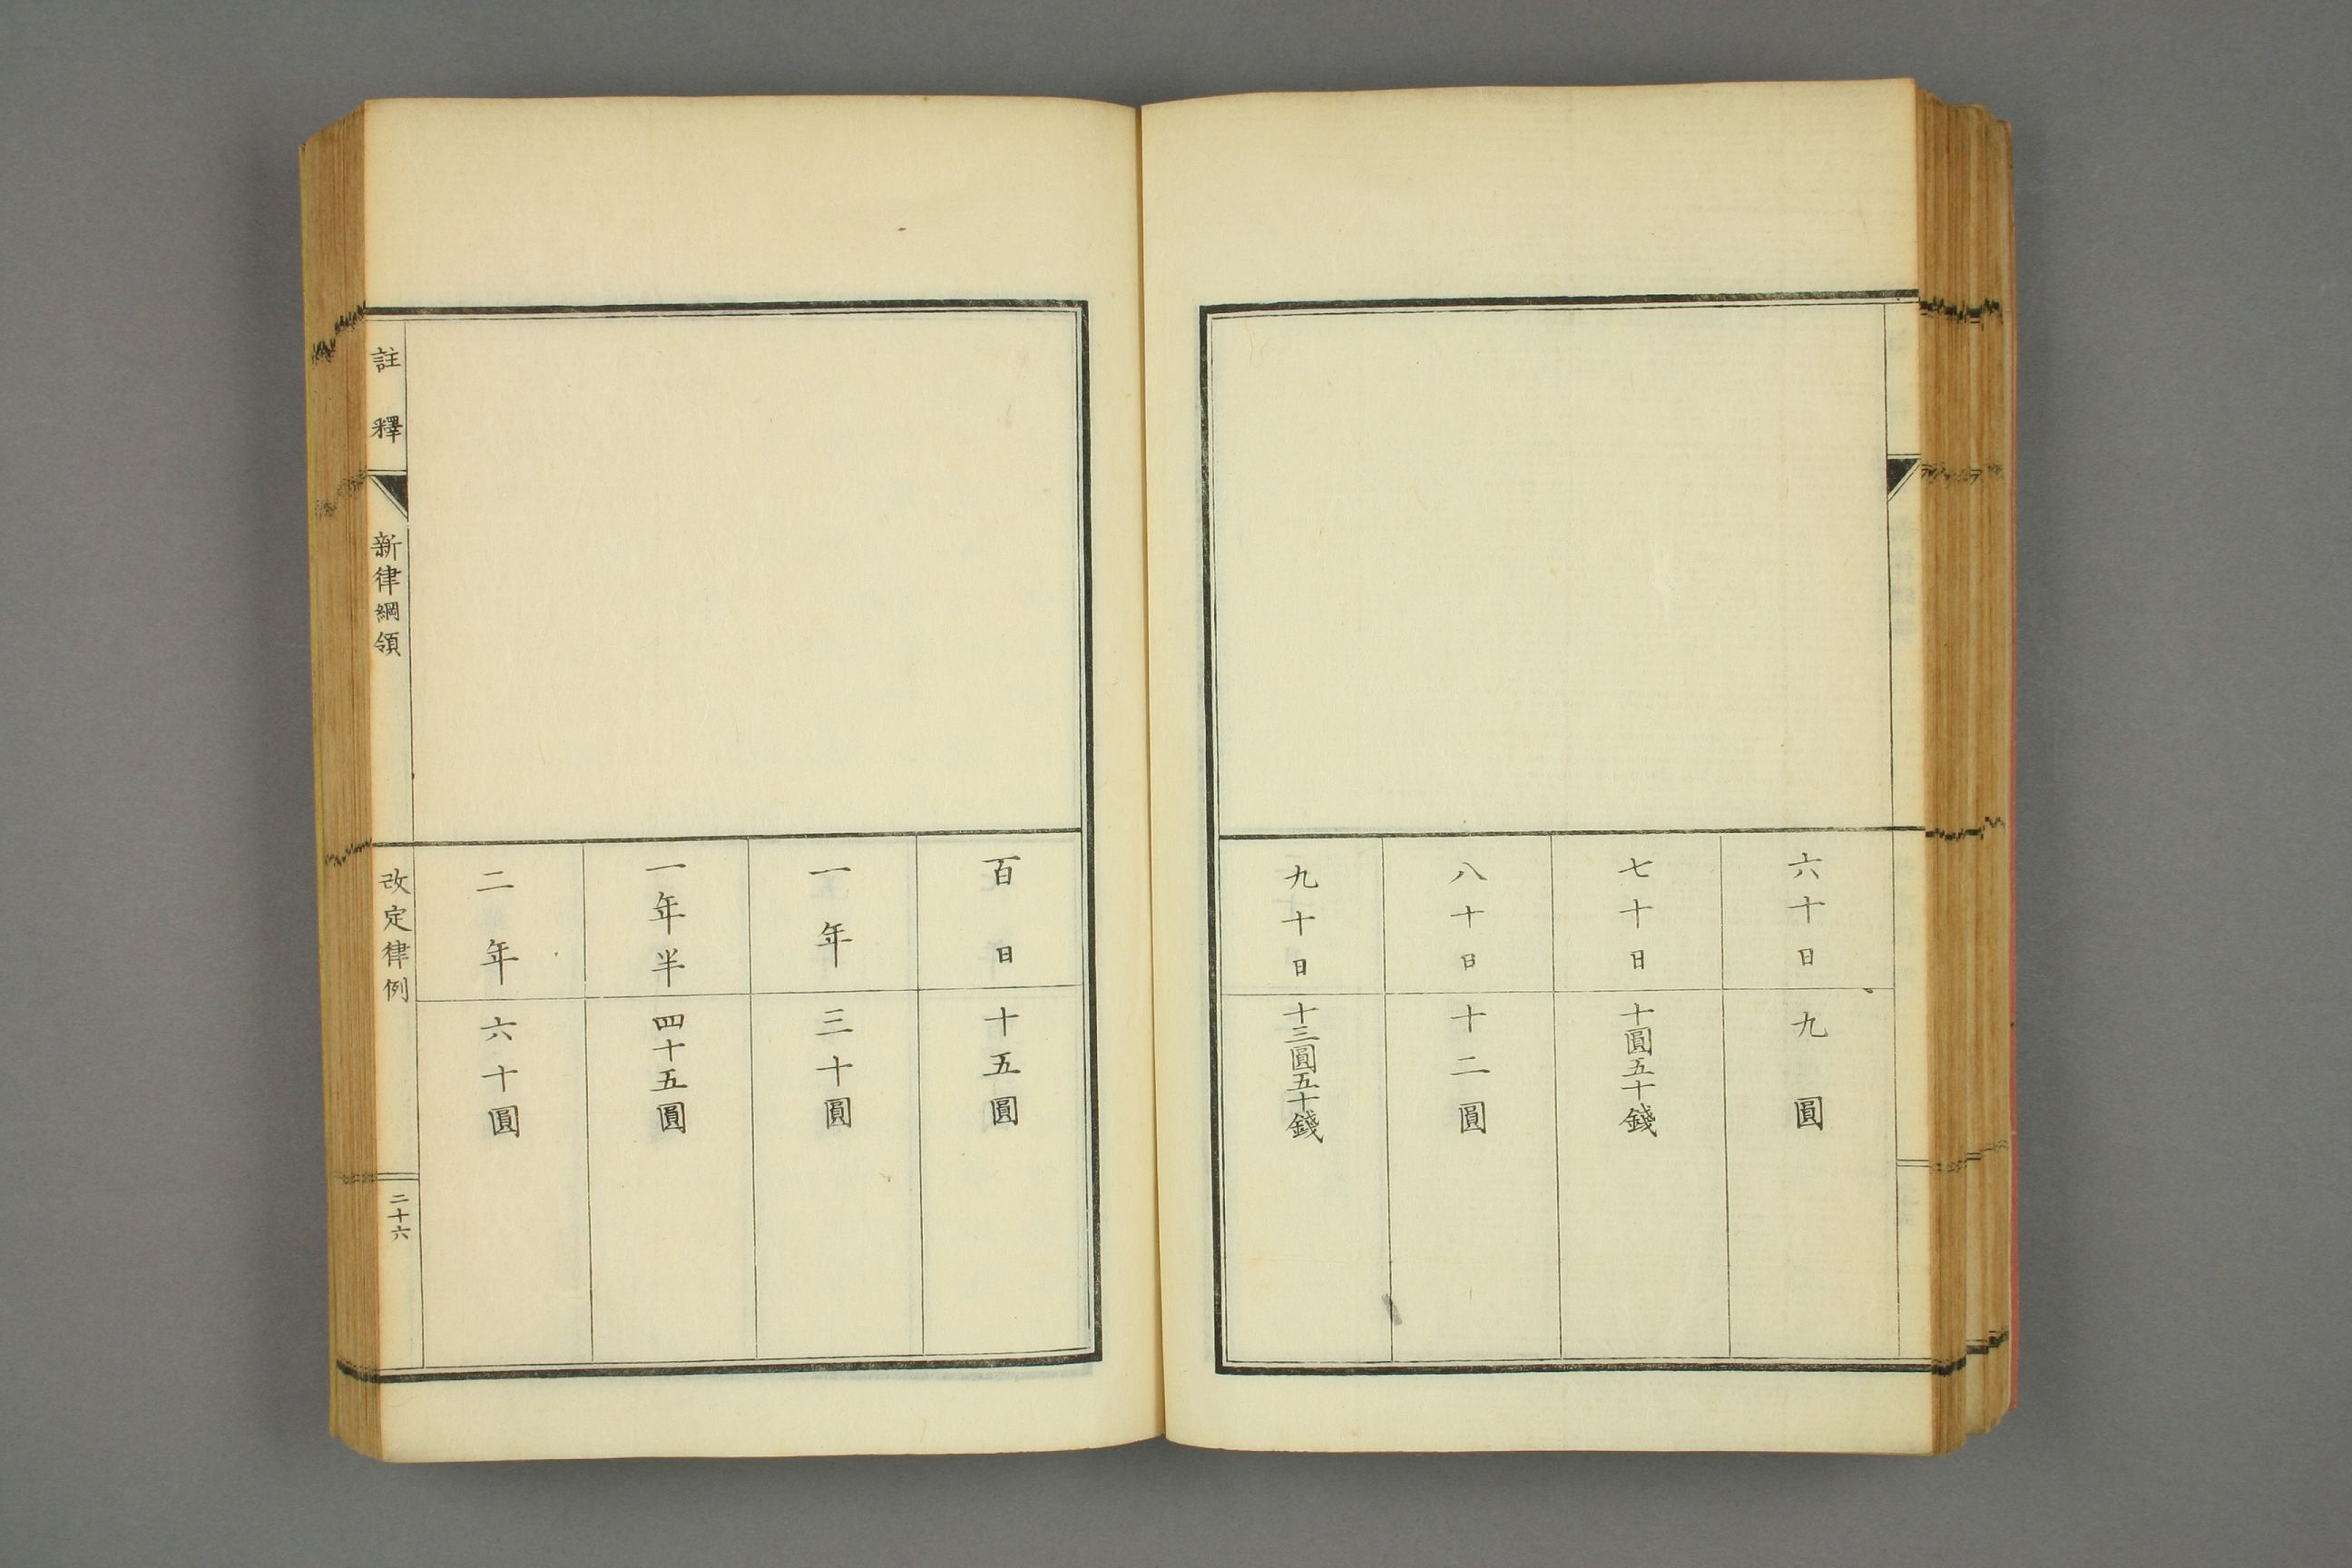 六十日
九圓
七十日
十圓五十錢
八十日
十二圓
九十日
十三圓五十錢
百日
十五圓
一年
三十圓
一年半
四十五圓
二年
六十圓
註釋
新律綱領
改定律例
二十六